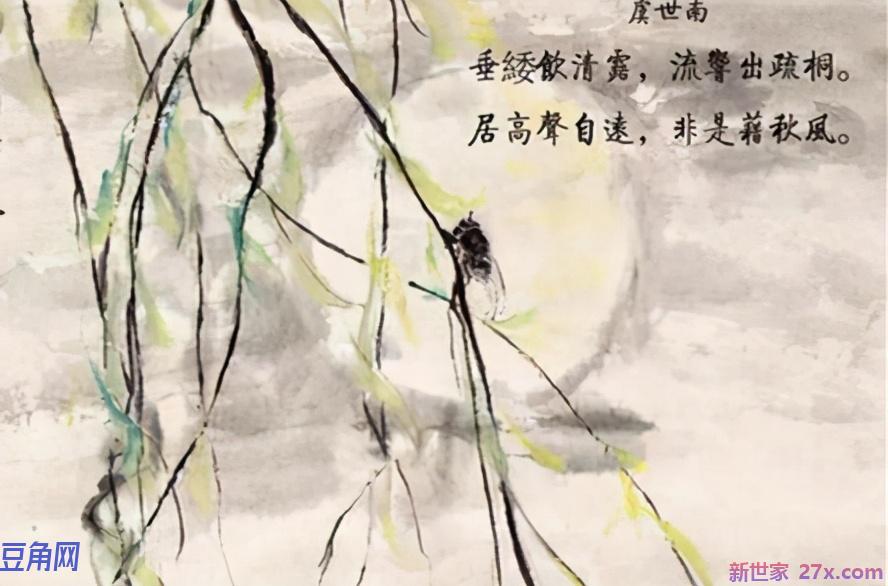 虞世南
垂緌飲清露，流響出疏桐。
居高聲自遠，非是藉秋風。
豆角网
新世家 27x.com